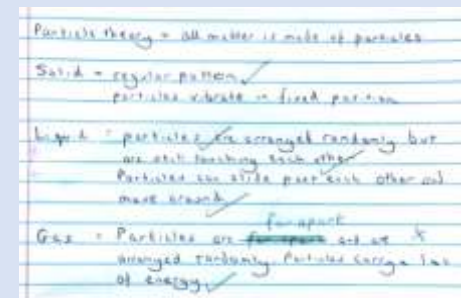 Particle theory = all matter is made of particles
Solid = regular pattern
particles vibrate in fixed position
Liquid = particles are arranged randomly but
are still touching each other
Particles can slide past each other and
move around
far apart
Gas = Particles are and are
arranged randomly. Particles carry a lot
of energy